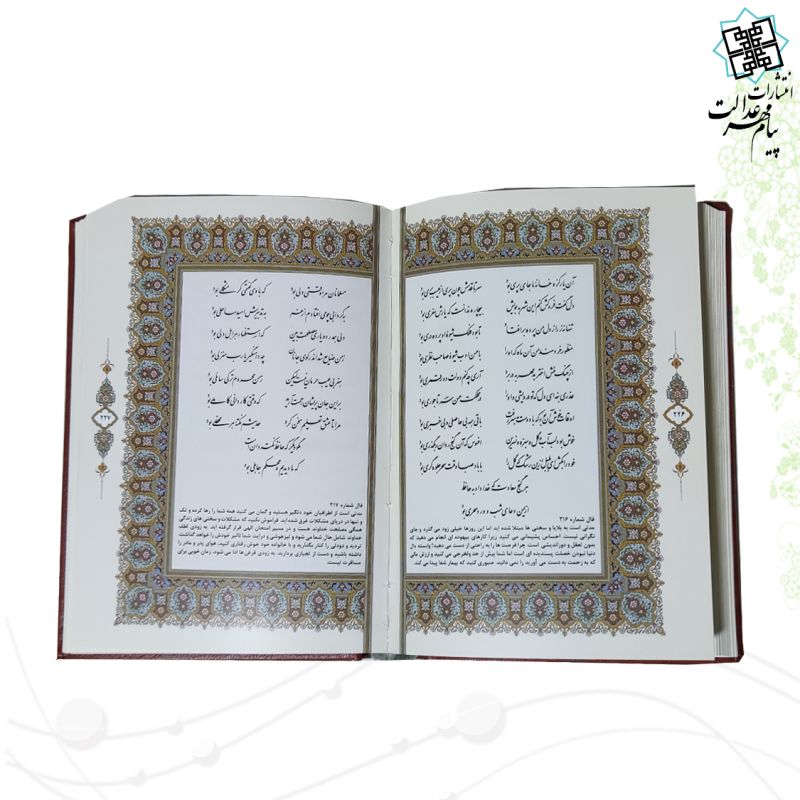 انتشارات
پیام مهر عدالت
آن یار کزو خانهٔ ما جای پری بود سر تا قدمش چون پری از عیب بری بود
دل گفت فروکش کنم این شهر به بویش بیچاره ندانست که یارش سفری بود
تنها نه ز راز دل من پرده برافتاد تا بود فلک شیوهٔ او پرده دری بود
منظور خردمند من آن ماه که او را با حسن ادب شیوهٔ صاحب نظری بود
از چنگ منش اختر بد مهر به در برد آری چه کنم دولت دور قمری بود
عذری بنه ای دل که تو درویشی و او را در مملکت حسن سر تاجوری بود
اوقات خوش آن بود که با دوست بسر رفت باقی همه بی حاصلی و بی خبری بود
خوش بود لب آب و گل و سبزه و نسرین افسوس که آن گنج روان رهگذری بود
خود را بکش ای بلبل ازین رشک که گل را با باد صبا وقت سحر جلوه گری بود
هر گنج سعادت که خدا داد به حافظ
از یمن دعای شب و ورد سحری بود
فال شماره ۲۱۶
مدتی است به بلایا و سختی ها مبتلا شده اید اما این روزها خیلی زود می گذرد و جای
نگرانی نیست. احساس پشیمانی می کنید زیرا کارهای بیهوده ای انجام می دهید که
بدون تعقل و دوراندیشی است. چرا فرصت ها را به راحتی از دست می دهید؟ وابسته بال
دنیا نبودن خصلت پسندیده ای است اما شما بیش از حد ولخرجی می کنید و ارزش مالی
که به زحمت به دست می آورید را نمی دانید. صبوری کنید که بیمار شفا پیدا می کند.
۲۲۶
مسلمانان مرا وقتی دلی بود که با وی گفتمی گر مشکلی بود
به گردابی چو می افتادم از غم به تدبیرش امید ساحلی بود
دلی همدرد و یاری مصلحت بین که استظهار هر اهل دلی بود
ز من ضایع شد اندر کوی جانان چه دامنگیر یارب منزلی بود
هنر بی عیب حرمان نیست لیکن ز من محروم تر کی سائلی بود
بر این جان پریشان رحمت آرید که وقتی کاردانی کاملی بود
مرا تا عشق تعلیم سخن کرد حدیثم نکتهٔ هر محفلی بود
مگو دیگر که حافظ نکته دان است
که ما دیدیم و محکم جاهلی بود
فال شماره ۲۱۷
مدتی است از اطرافیان خود دلگیر هستید و گمان می کنید همه شما را رها کرده و تک
و تنها در دریای مشکلات غرق شده اید. فراموش نکنید که مشکلات و سختی های زندگی
همگی مصلحت خداوند هست و در مسیر امتحان الهی قرار گرفته اید. به زودی لطف
خداوند شامل حال شما می شود و تیزهوشی و درایت شما تاثیر خودش را خواهد گذاشت.
تردید و دودلی را کنار بگذارید و با خانواده خود خوش رفتاری کنید، هوای پدر و مادر را
داشته باشید و دست از لجبازی بردارید. به زودی قرض ها ادا می شود. زمان خوبی برای
مسافرت نیست.
۲۲۷